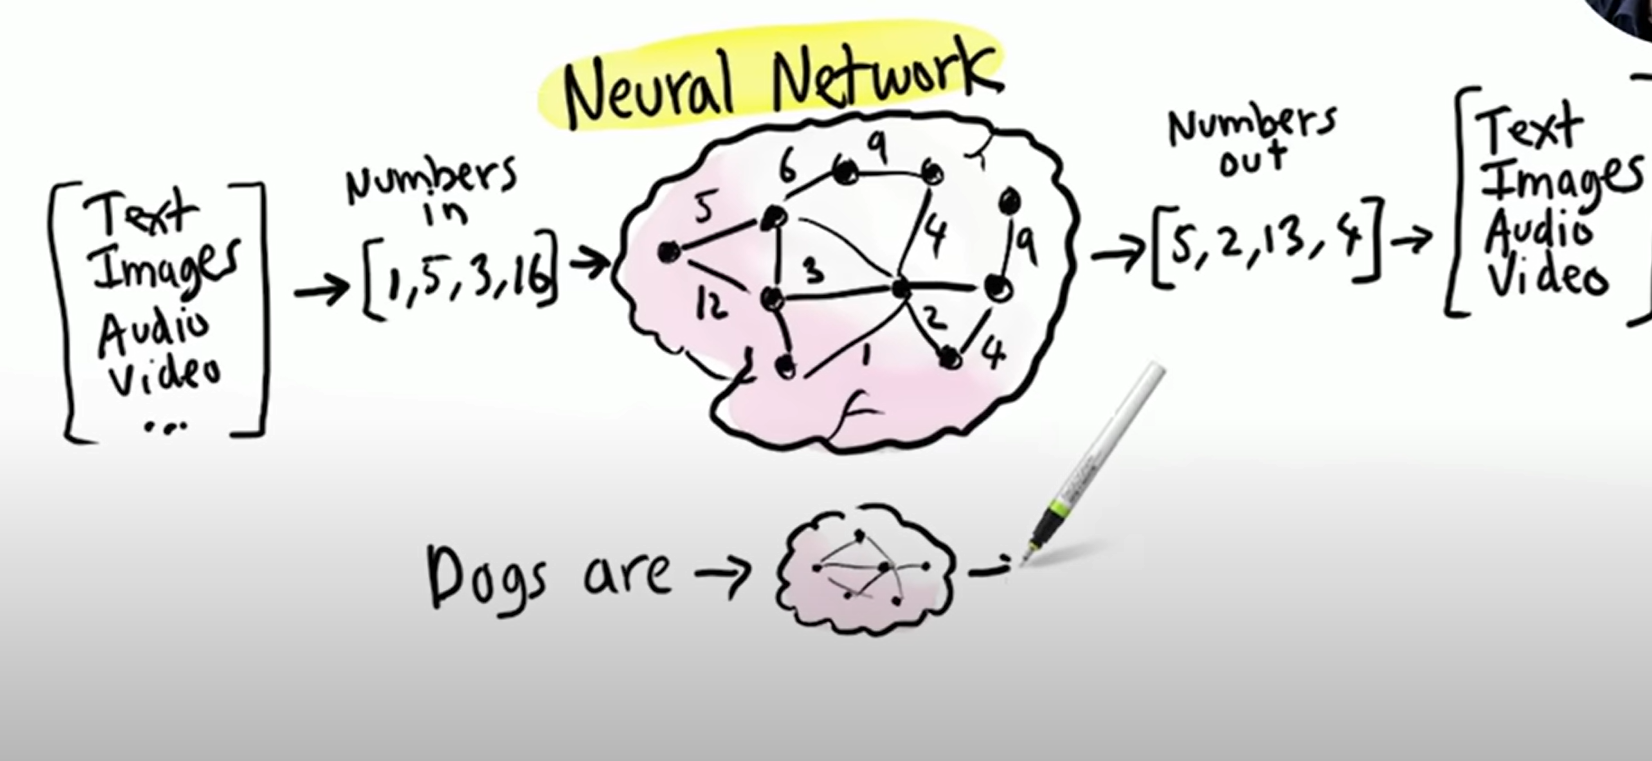 Neural Network
Text
Images
Audio
Video
...
Numbers
in
[1,5,3,16]
5
6
9
4
9
12
3
2
4
1
Numbers
out
[5,2,13,4]
Text
Images
Audio
Video
Dogs are